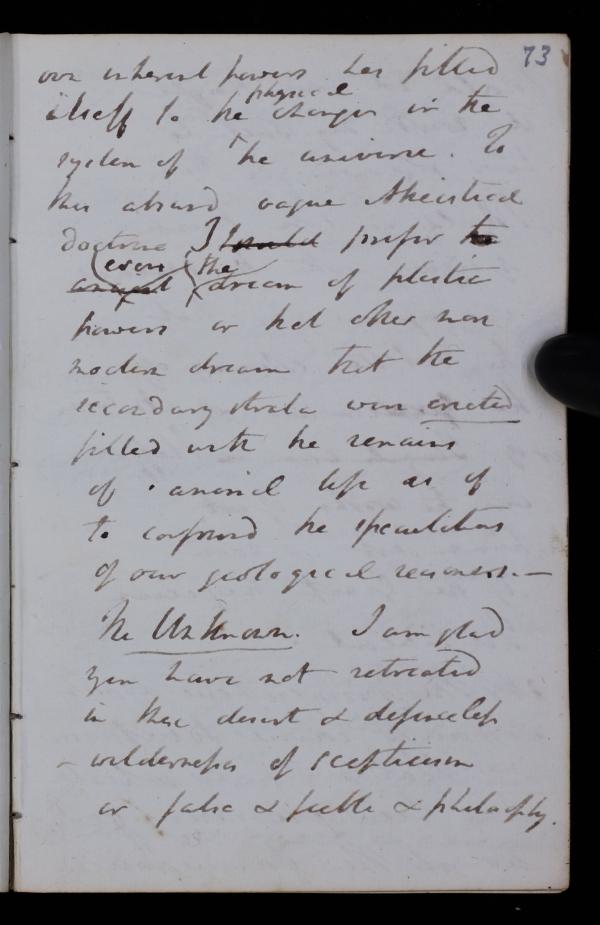 73
own inherent powers has fitted
itself to the physical changes in the
system of the universe. To
this absurd vague Atheistical
doctrine I should prefer the
even the dream of plastic
powers or that other more
modern dream that the
secondary strata were created
filled with the remains
of animal life as if
to confound the speculations
of our geological reasoners.—
The Unknown. I am glad
you have not retreated
in the desert & defenceless
wilderness of scepticism
or false & feeble & philosophy.